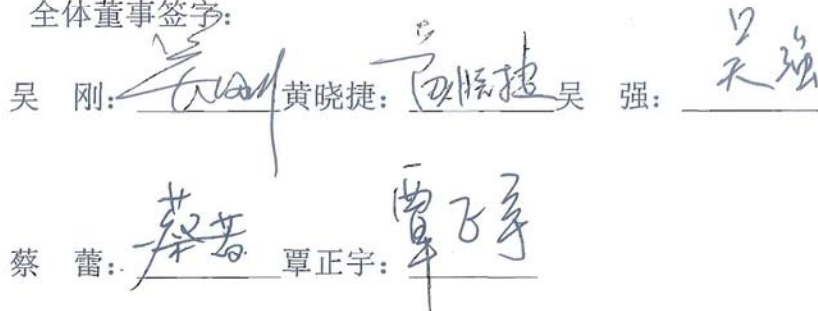 全体董事签字:
吴 刚: 吴刚 黄晓捷: 黄晓捷 吴 强: 吴强
蔡 蕾: 蔡蕾 覃正宇: 覃正宇